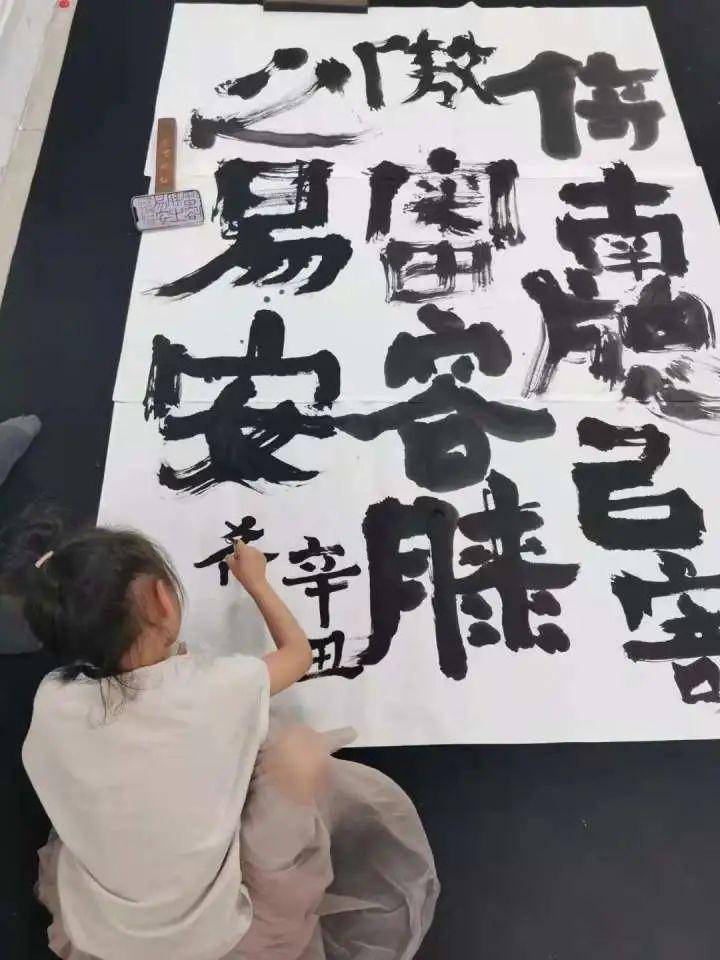 倚南牕㠯寄
傲審容膝
之易安
辛丑
希